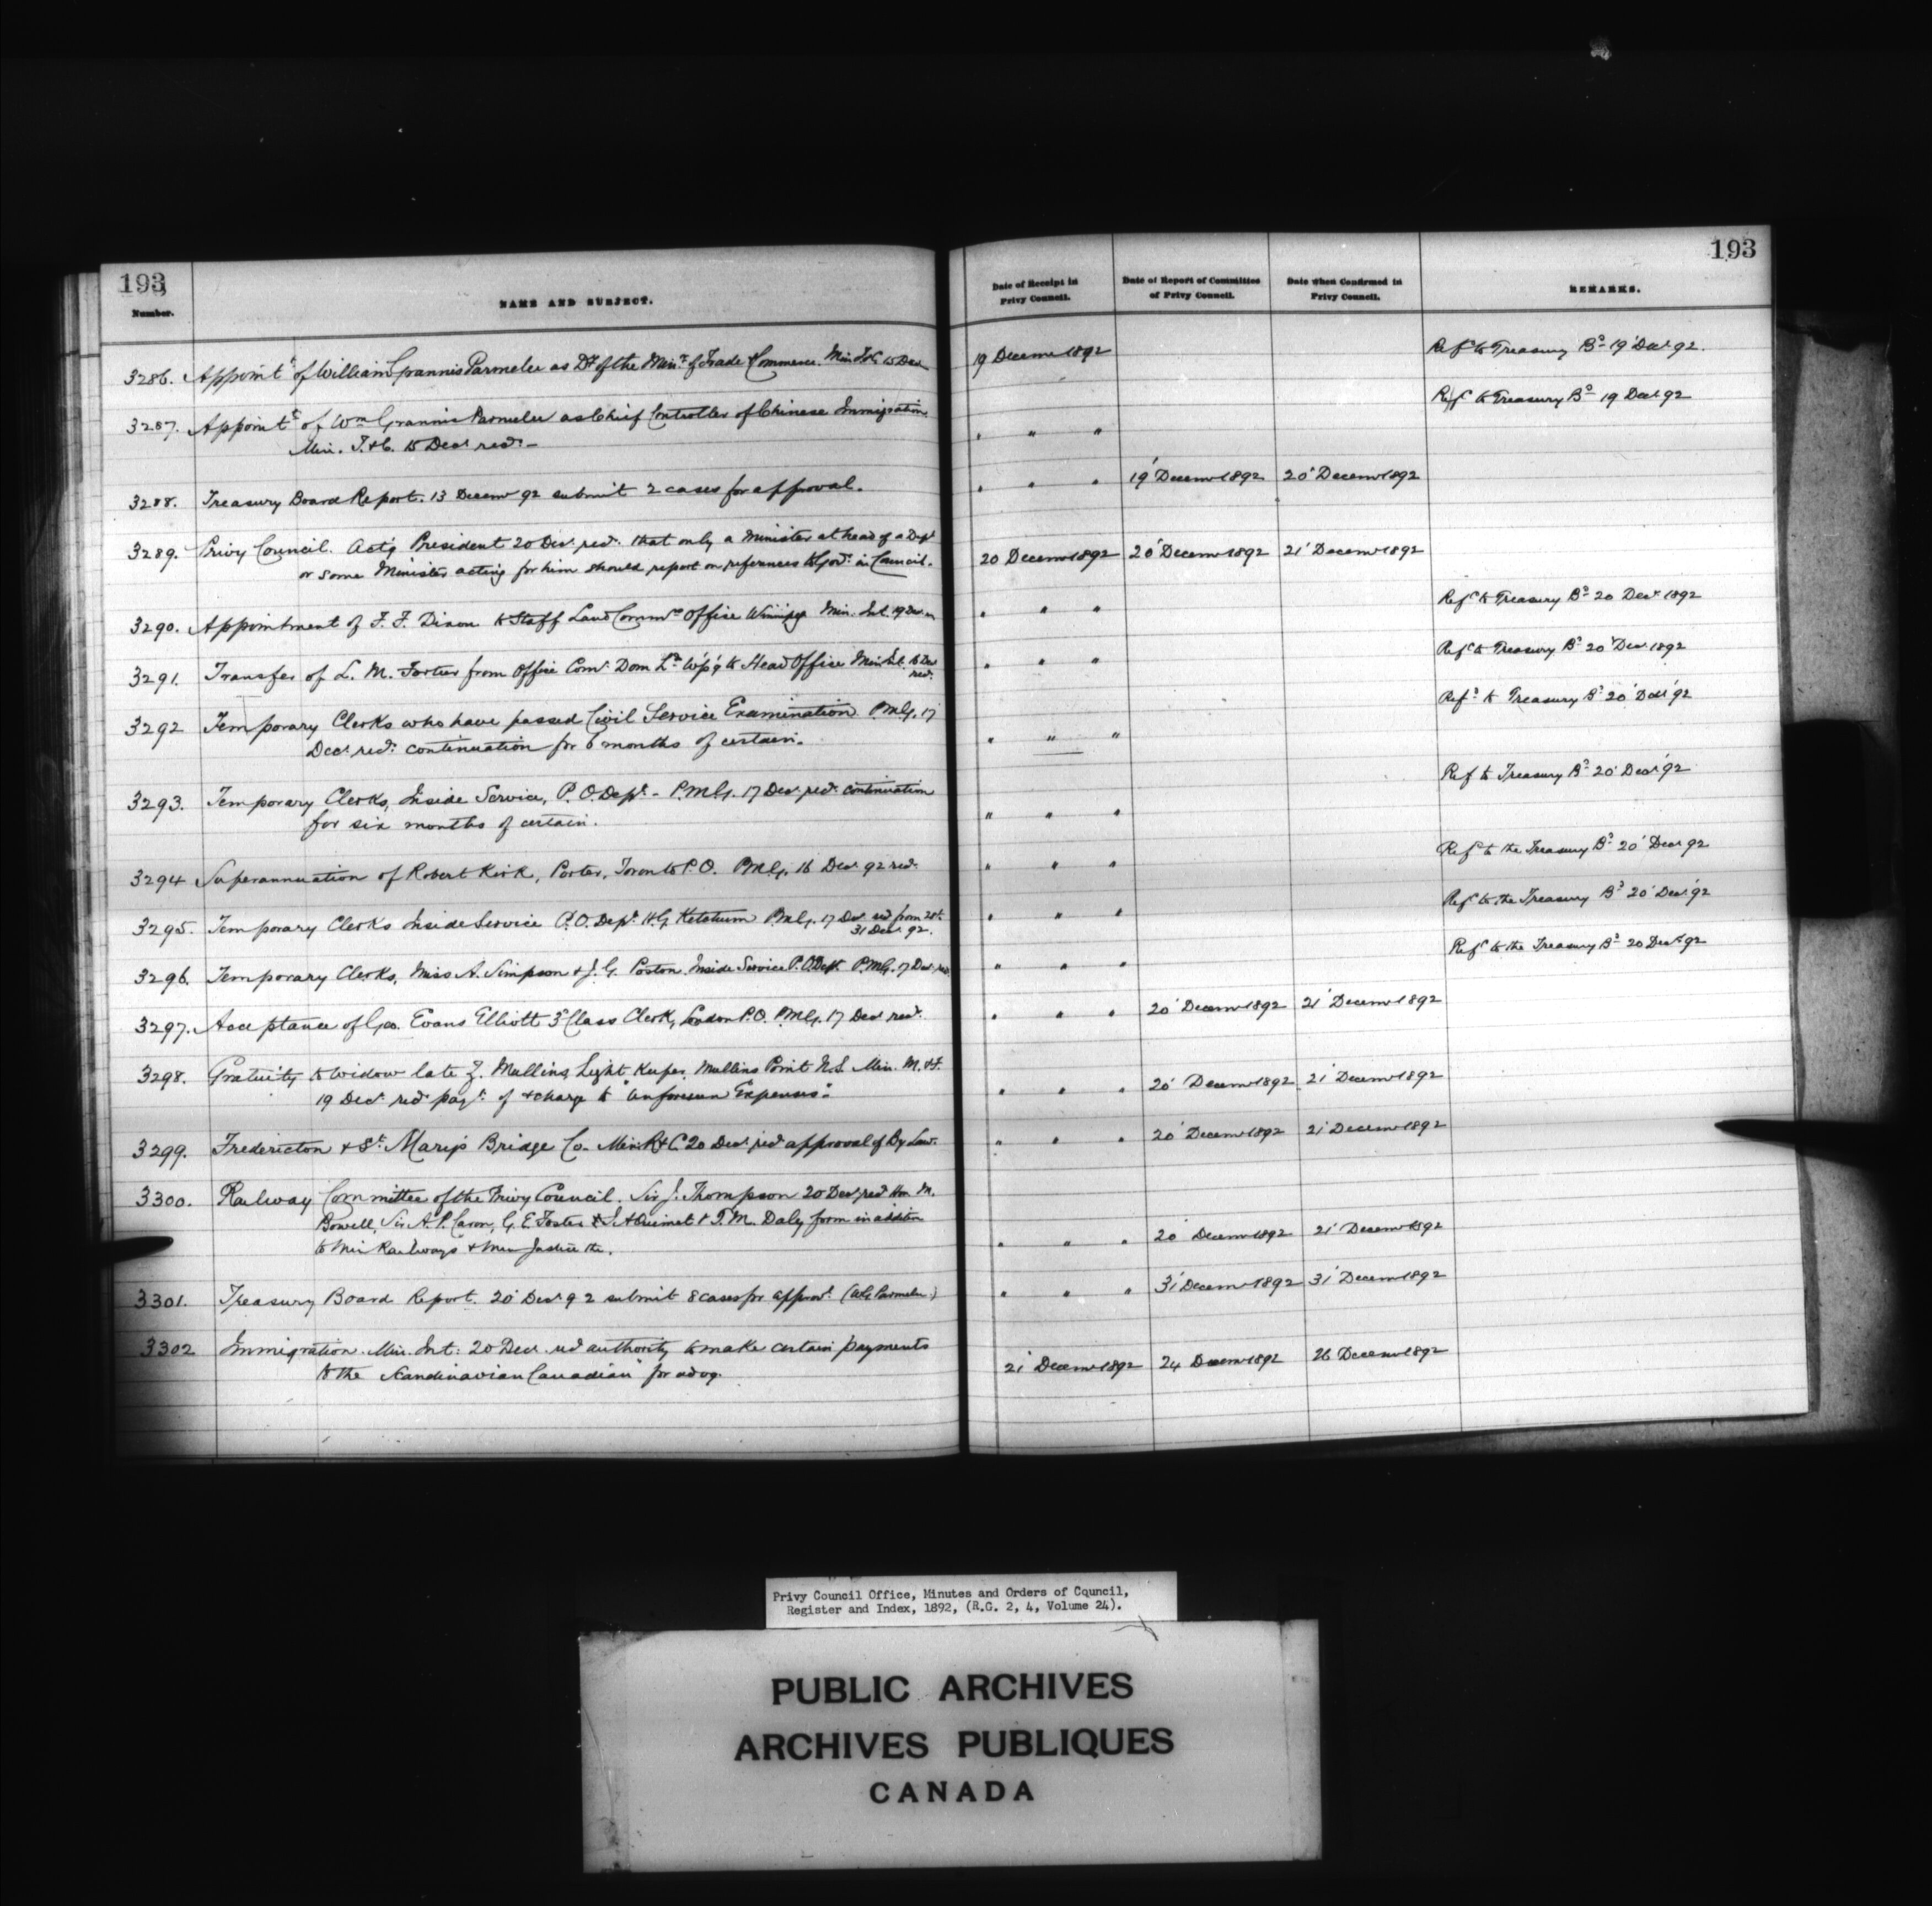 193
Number.
NAME AND SUBJECT.
Date of Receipt in Privy Council.
Date of Report of Committee of Privy Council.
Date when Confirmed in Privy Council.
REMARKS.
193
3286. Appoint^t of William Grannis Parmelee as D^y of the Min^r of Trade & Commerce. Min. T&C 15 Dec 19 Decemr 1892 Ref^d to Treasury B^d 19' Decr 92.
3287. Appoint^t of W^m Grannis Parmelee as Chief Controller of Chinese Immigration Ref^d to Treasury B^d 19 Decr 92
Min. T.&C. 15 Decr recd. — " " "
3288. Treasury Board Report. 13 Decemr 92 submit 2 cases for approval. " " " 19' Decemr 1892 20' Decemr 1892
3289. Privy Council. Act'g President 20 Decr recd. that only a Minister at head of a Dept
or some Minister acting for him should report on references to Govr. in Council. 20 Decemr 1892 20' Decemr 1892 21' Decemr 1892
3290. Appointment of F. F. Dixon to Staff Land Commr Office Winnipeg Min. Int. 19 Dec " " " Ref^d to Treasury B^d 20 Decr 1892
3291. Transfer of L. M. Fortier from Office Comr. Dom L^ds W'p'g to Head Office Min Int. 16 Dec recd. " " " Ref^d to Treasury B^d 20' Decr 1892
3292 Temporary Clerks who have passed Civil Service Examination P.M.G. 17 Ref^d to Treasury B^d 20' Decr '92
Decr recd. continuation for 6 months of certain. " " "
3293. Temporary Clerks, Inside Service, P.O. Dept. - P.M.G. 17 Decr recd. continuation Ref to Treasury B^d 20' Decr '92
for six months of certain. " " "
3294 Superannuation of Robert Kirk, Porter, Toronto P.O. P.M.G. 16 Decr 92 recd. " " " Ref^d to the Treasury B^d 20' Decr 92
3295. Temporary Clerks Inside Service P.O. Dept. H.G. Ketchum P.M.G. 17 Decr recd from 28 to 31 Decr 92. " " " Ref^d to the Treasury B^d 20' Decr '92
3296. Temporary Clerks, Miss A. Simpson & J. G. Poston. Inside Service P.O. Dept. P.M.G. 17 Decr recd. " " " Ref^d to the Treasury B^d 20 Decr 92
3297. Acceptance of Geo. Evans Elliott 3^d Class Clerk, London P.O. P.M.G. 17 Decr recd. " " " 20' Decemr 1892 21' Decemr 1892
3298. Gratuity to widow late Mullins, Light Keeper, Mullins Point N.S. Min. M.&F.
19 Decr recd payt. of & charge to "Unforeseen Expenses". " " " 20' Decemr 1892 21' Decemr 1892
3299. Fredericton & St. Mary's Bridge Co. Min R&C 20 Decr recd approval of By Law. " " " 20' Decemr 1892 21' Decemr 1892
3300. Railway Committee of the Privy Council. Sir J. Thompson 20 Decr recd Hon M.
Bowell, Sir A.P. Caron, G.E. Foster & J.A. Ouimet & T.M. Daly form in addition
to Min Railways & Min Justice the. " " " 20' Decemr 1892 21' Decemr 1892
3301. Treasury Board Report. 20' Decr 92 submit 8 cases for approvl. (W.G. Parmelee) " " " 31' Decemr 1892 31' Decemr 1892
3302 Immigration. Min. Int: 20 Decr recd authority to make certain payments
to the "Scandinavian Canadian" for advg. 21' Decemr 1892 24 Decemr 1892 26 Decemr 1892
Privy Council Office, Minutes and Orders of Council,
Register and Index, 1892, (R.G. 2, 4, Volume 24).
PUBLIC ARCHIVES
ARCHIVES PUBLIQUES
CANADA